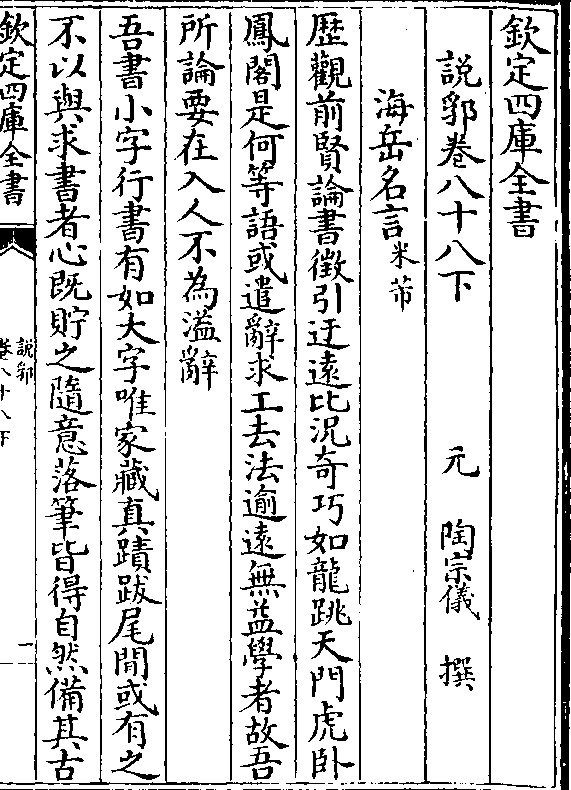 欽定四庫全書
說郛卷八十八下 元 陶宗儀 撰
海岳名言 米芾
歴觀前賢論書徵引迂遠比況奇巧如龍跳天門虎卧
鳳閣是何等語或遣辭求工去法逾遠無益學者故吾
所論要在入人不為溢辭
吾書小字行書有如大字唯家藏真蹟跋尾間或有之
不以與求書者心既貯之隨意落筆皆得自然備其古
欽定四庫全書
說郛
卷八十八下
一